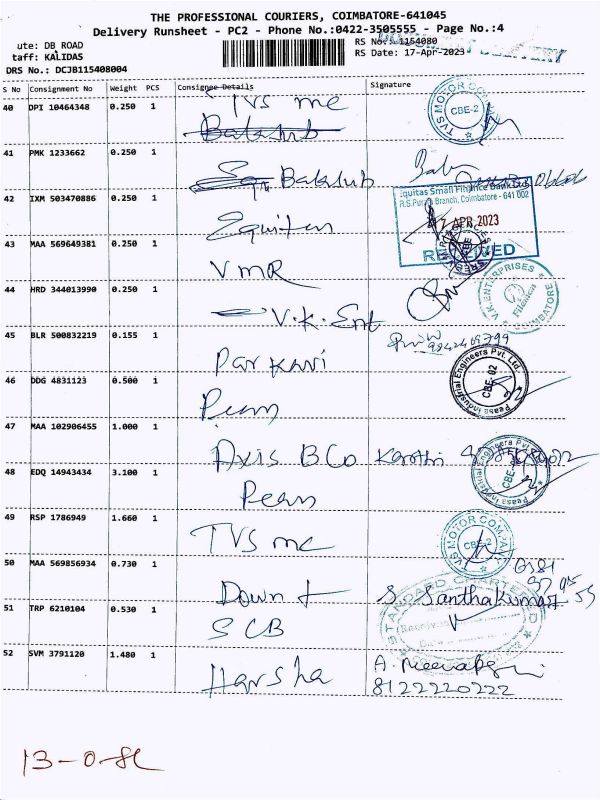 THE PROFESSIONAL COURIERS, COIMBATORE-641045
Delivery Runsheet - PC2 - Phone No.:0422-3505555 - Page No.:4
ute: DB ROAD RS No.: 1154080
taff: KALIDAS RS Date: 17-Apr-2023
DRS No.: DCJB115408004
S No Consignment No Weight PCS Consignee Details Signature
40 DPI 10464348 0.250 1 TVS mc
TVS MOTOR COM CBE-2
41 PMK 1233662 0.250 1 Bakshub
42 IXM 503470886 0.250 1 Equitas
Equitas Small Finance Bank
R.S.Puram Branch, Coimbatore - 641 002
APR 2023
RECEIVED
43 MAA 569649381 0.250 1 VMR
44 HRD 344013990 0.250 1 V.K. Ent
V.K. ENTERPRISES COIMBATORE
45 BLR 500832219 0.155 1 Parkavi
46 DDG 4831123 0.500 1 Peass
Peass Industrial Engineers Pvt. Ltd. CBE-02
47 MAA 102906455 1.000 1 Axis BCo Karthi
48 EDQ 14943434 3.100 1 Peass
Peass Industrial Engineers Pvt. Ltd.
49 RSP 1786949 1.660 1 TVS mc
TVS MOTOR COM CBE-2
50 MAA 569856934 0.730 1 Down t S. Santhakumar
51 TRP 6210104 0.530 1 SCB
STANDARD CHARTERED
52 SVM 3791120 1.480 1 Harsha
8122220222
13-0-82